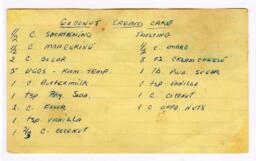 COCONUT CREAM CAKE
1/2 C. SHORTENING
1/2 C. MARGERINE
2 C. SUGAR
5 EGGS - ROOM TEMP.
1 C Buttermilk
1 tsp Bkg. Soda.
2 C. FLOUR
1 tsp. VANILLA
1 2/3 C. COCONUT
FROSTING
1/2 C. MARG
8 oz. CREAM CHEESE
1 lb. PWD. SUGAR
1 tsp. VANILLA
1 C COCONUT
1 C CHPD. NUTS